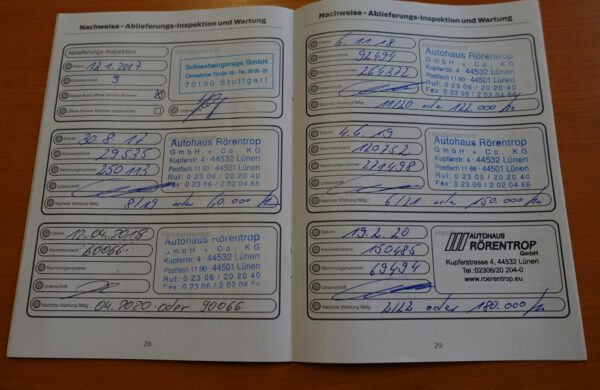 Nachweise - Ablieferungs-Inspektion und Wartung
Ablieferungs-Inspektion
Datum 12.1.2017
Kilometerstand 9
Schwabengarage GmbH
70190 Stuttgart
Datum 30.8.17
Kilometerstand 29535
Rechnungsnummer 250113
Unterschrift
Nächste Wartung fällig: 8/19 oder 60.000 km
Autohaus Rörentrop
GmbH + Co. KG
Kupferstr. 4 · 44532 Lünen
Postfach 11 60 · 44501 Lünen
Ruf: 0 23 06 / 20 20 40
Fax: 0 23 06 / 2 02 04 66
Datum 12.04.2018
Kilometerstand 60066
Rechnungsnummer
Unterschrift
Nächste Wartung fällig: 04.2020 oder 90066
Autohaus Rörentrop
GmbH + Co. KG
Kupferstr. 4 · 44532 Lünen
Postfach 11 60 · 44501 Lünen
Ruf: 0 23 06 / 20 20 40
28
Nachweise - Ablieferungs-Inspektion und Wartung
Datum 6.11.18
92494
264322
Nächste Wartung fällig: 11/20 oder 122.000 km
Autohaus Rörentrop
GmbH + Co. KG
Kupferstr. 4 · 44532 Lünen
Postfach 11 60 · 44501 Lünen
Ruf: 0 23 06 / 20 20 40
Fax: 0 23 06 / 2 02 04 66
Datum 4.6.19
Kilometerstand 120252
Rechnungsnummer 271498
Unterschrift
Nächste Wartung fällig: 6/21 oder 150.000 km
Autohaus Rörentrop
GmbH + Co. KG
Kupferstr. 4 · 44532 Lünen
Postfach 11 60 · 44501 Lünen
Ruf: 0 23 06 / 20 20 40
Fax: 0 23 06 / 2 02 04 66
Datum 19.2.20
Kilometerstand 150485
Rechnungsnummer 69494
Unterschrift
Nächste Wartung fällig: 2/22 oder 180.000 km
AUTOHAUS
RÖRENTROP
GmbH
Kupferstrasse 4, 44532 Lünen
Tel.:02306/20 204-0
www.roerentrop.eu
29